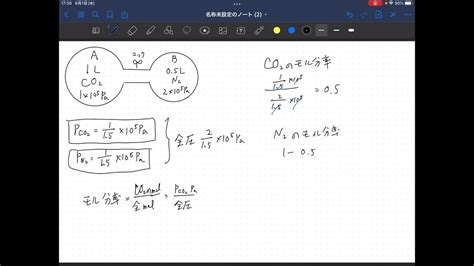 17:00 6月1日(水)
名称未設定のノート (2)
90%
A
1L
CO₂
1×10⁵Pa
コック
B
0.5L
N₂
2×10⁵Pa
P_CO₂ = 1/1.5 ×10⁵Pa
P_N₂ = 1/1.5 ×10⁵Pa
全圧 2/1.5 ×10⁵Pa
モル分率 = CO₂のmol/全mol = P_CO₂ Pa/全圧
CO₂のモル分率
1/1.5 ×10⁵ / 2/1.5 ×10⁵ = 0.5
N₂のモル分率
1 - 0.5